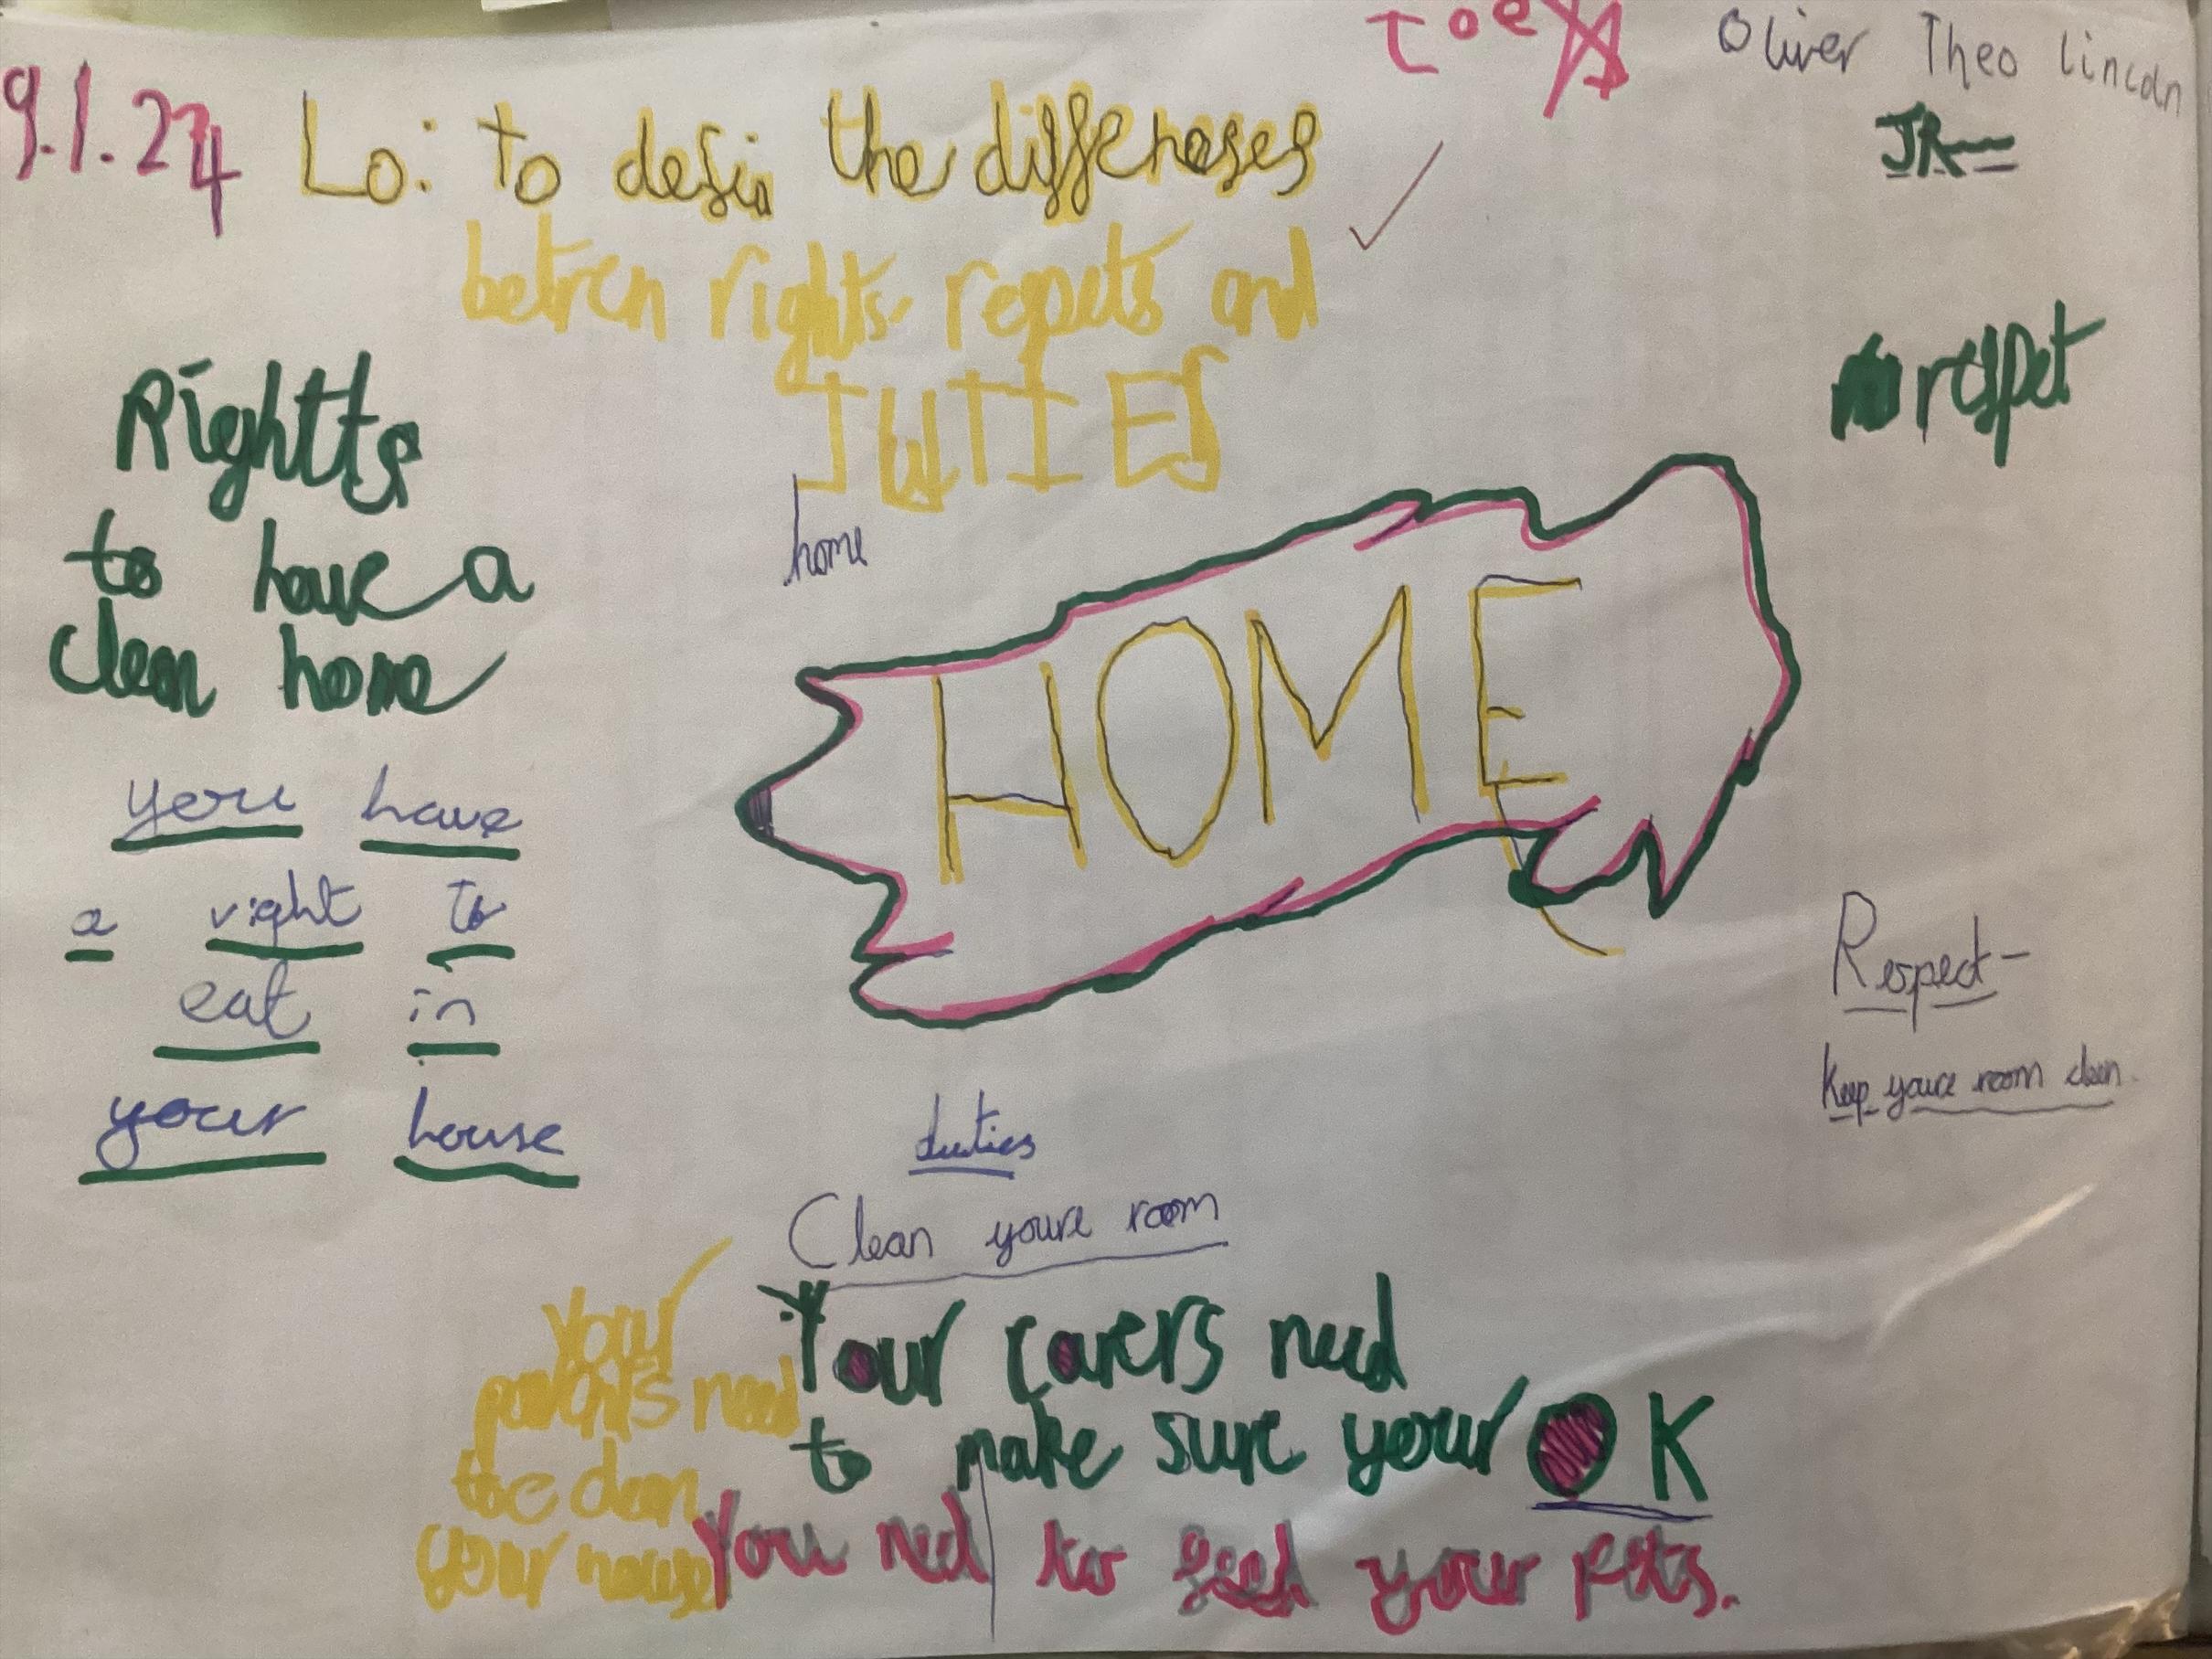 9.1.24 Lo: to defin the differeses
betren rights. repets and
JUTIES
Oliver Theo Lincoln
JR
respet
Rightts
to have a
clean home
you have
a right to
eat in
your house
home
HOME
Respect-
Keep youre room clean.
duties
Clean youre room
Your carers need
to make sure your OK
Your
parents need
to clean
your house
You ned to feed your pets.